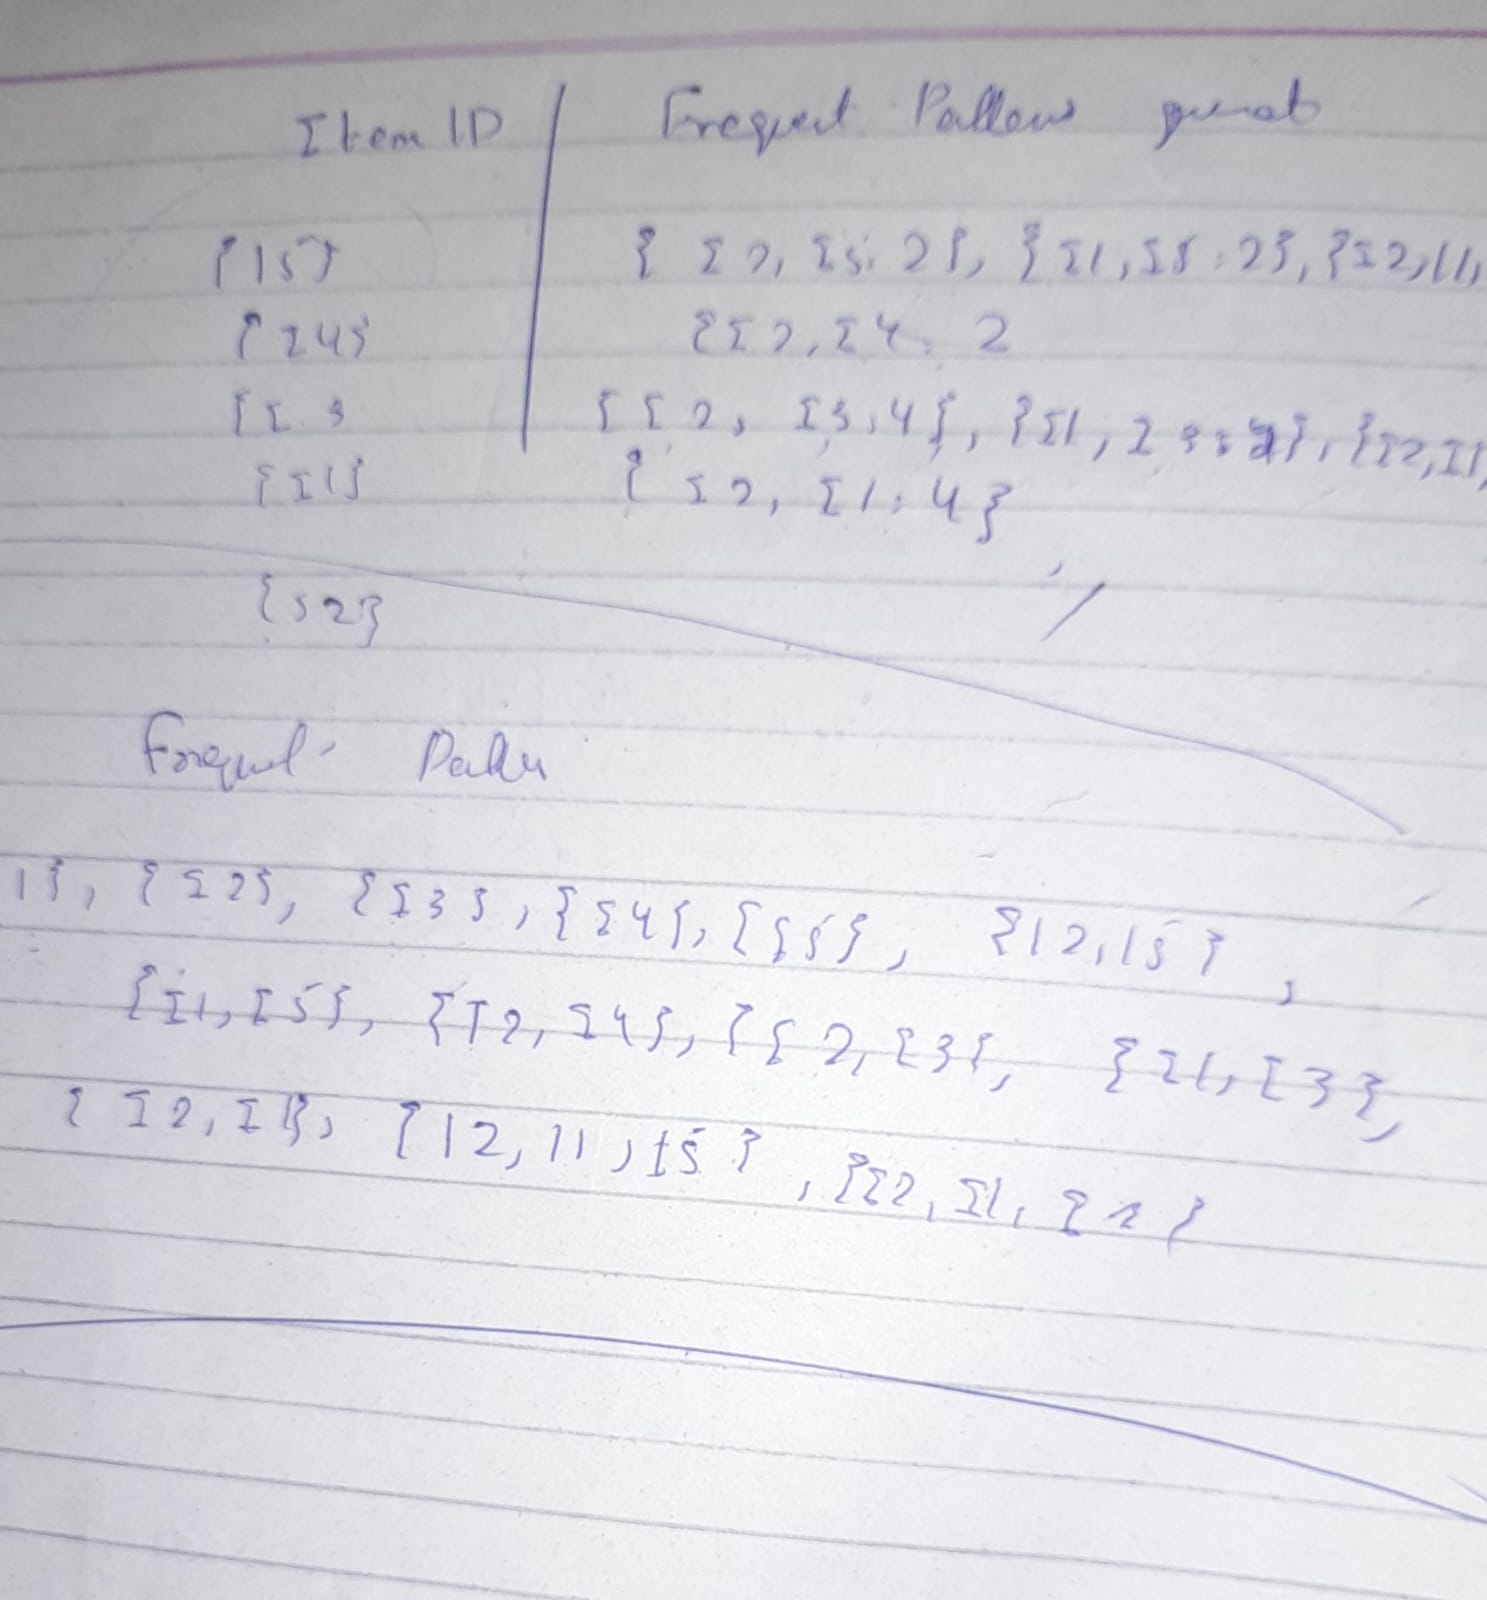 Item ID | Frequent Patterns generat
{I5} {I2, I5: 2}, {I1, I5: 2}, {I2, I1,
{I4} {I2, I4: 2
{I3 {I2, I3: 4}, {I1, I3: }, {I2, I1,
{I1} {I2, I1: 4}
{I2}
Frequent
1}, {I2}, {I3}, {I4}, {I5}, {I2, I5},
{I1, I5}, {I2, I4}, {I2, I3}, {I1, I3},
{I2, I1}, {I2, I1, I5}, {I2, I1, }